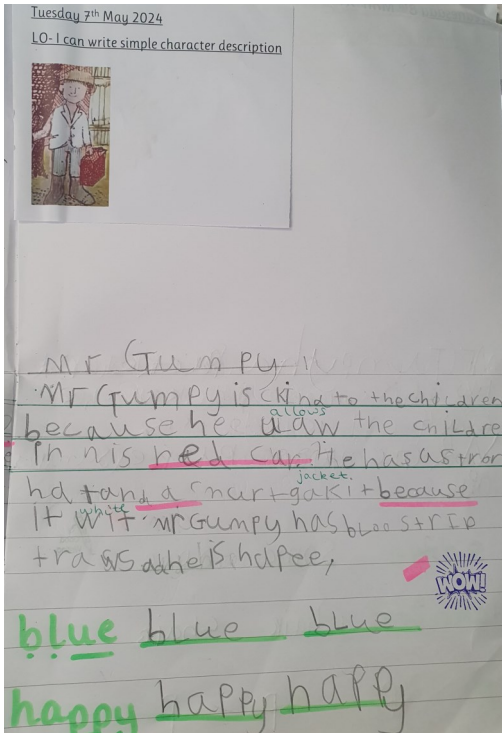 Tuesday 7th May 2024
LO- I can write simple character description
Mr Gumpy
Mr Gumpy is king to the children
because he uaw the childre
allows
in his red car. He has a stror
jacket.
hd tand a smurt gakit because
white
it wit. mr Gumpy has bloo strip
traws he is hapee,
WOW!
blue blue blue
happy happy happy